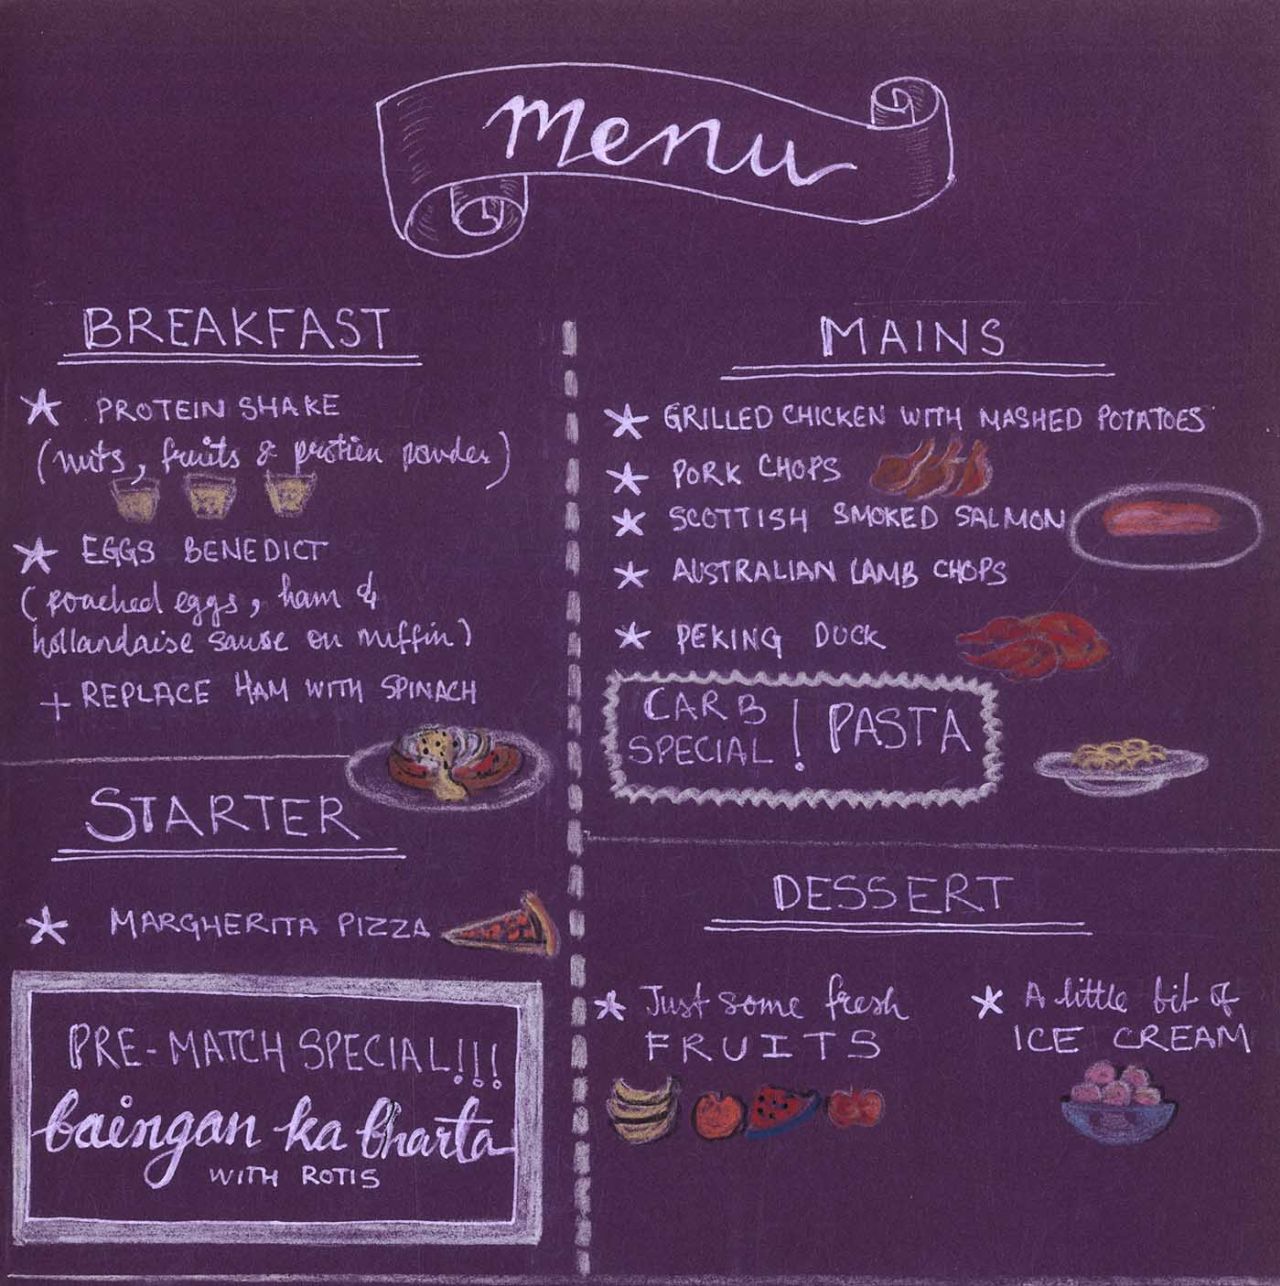 Menu
BREAKFAST
PROTEIN SHAKE
(nuts, fruits & protien powder)
EGGS BENEDICT
(poached eggs, ham &
hollandaise sause on muffin)
+ REPLACE HAM WITH SPINACH
STARTER
MARGHERITA PIZZA
PRE-MATCH SPECIAL!!!
baingan ka bharta
WITH ROTIS
MAINS
GRILLED CHICKEN WITH MASHED POTATOES
PORK CHOPS
SCOTTISH SMOKED SALMON
AUSTRALIAN LAMB CHOPS
PEKING DUCK
CARB SPECIAL! PASTA
DESSERT
Just some fresh
FRUITS
A little bit of
ICE CREAM